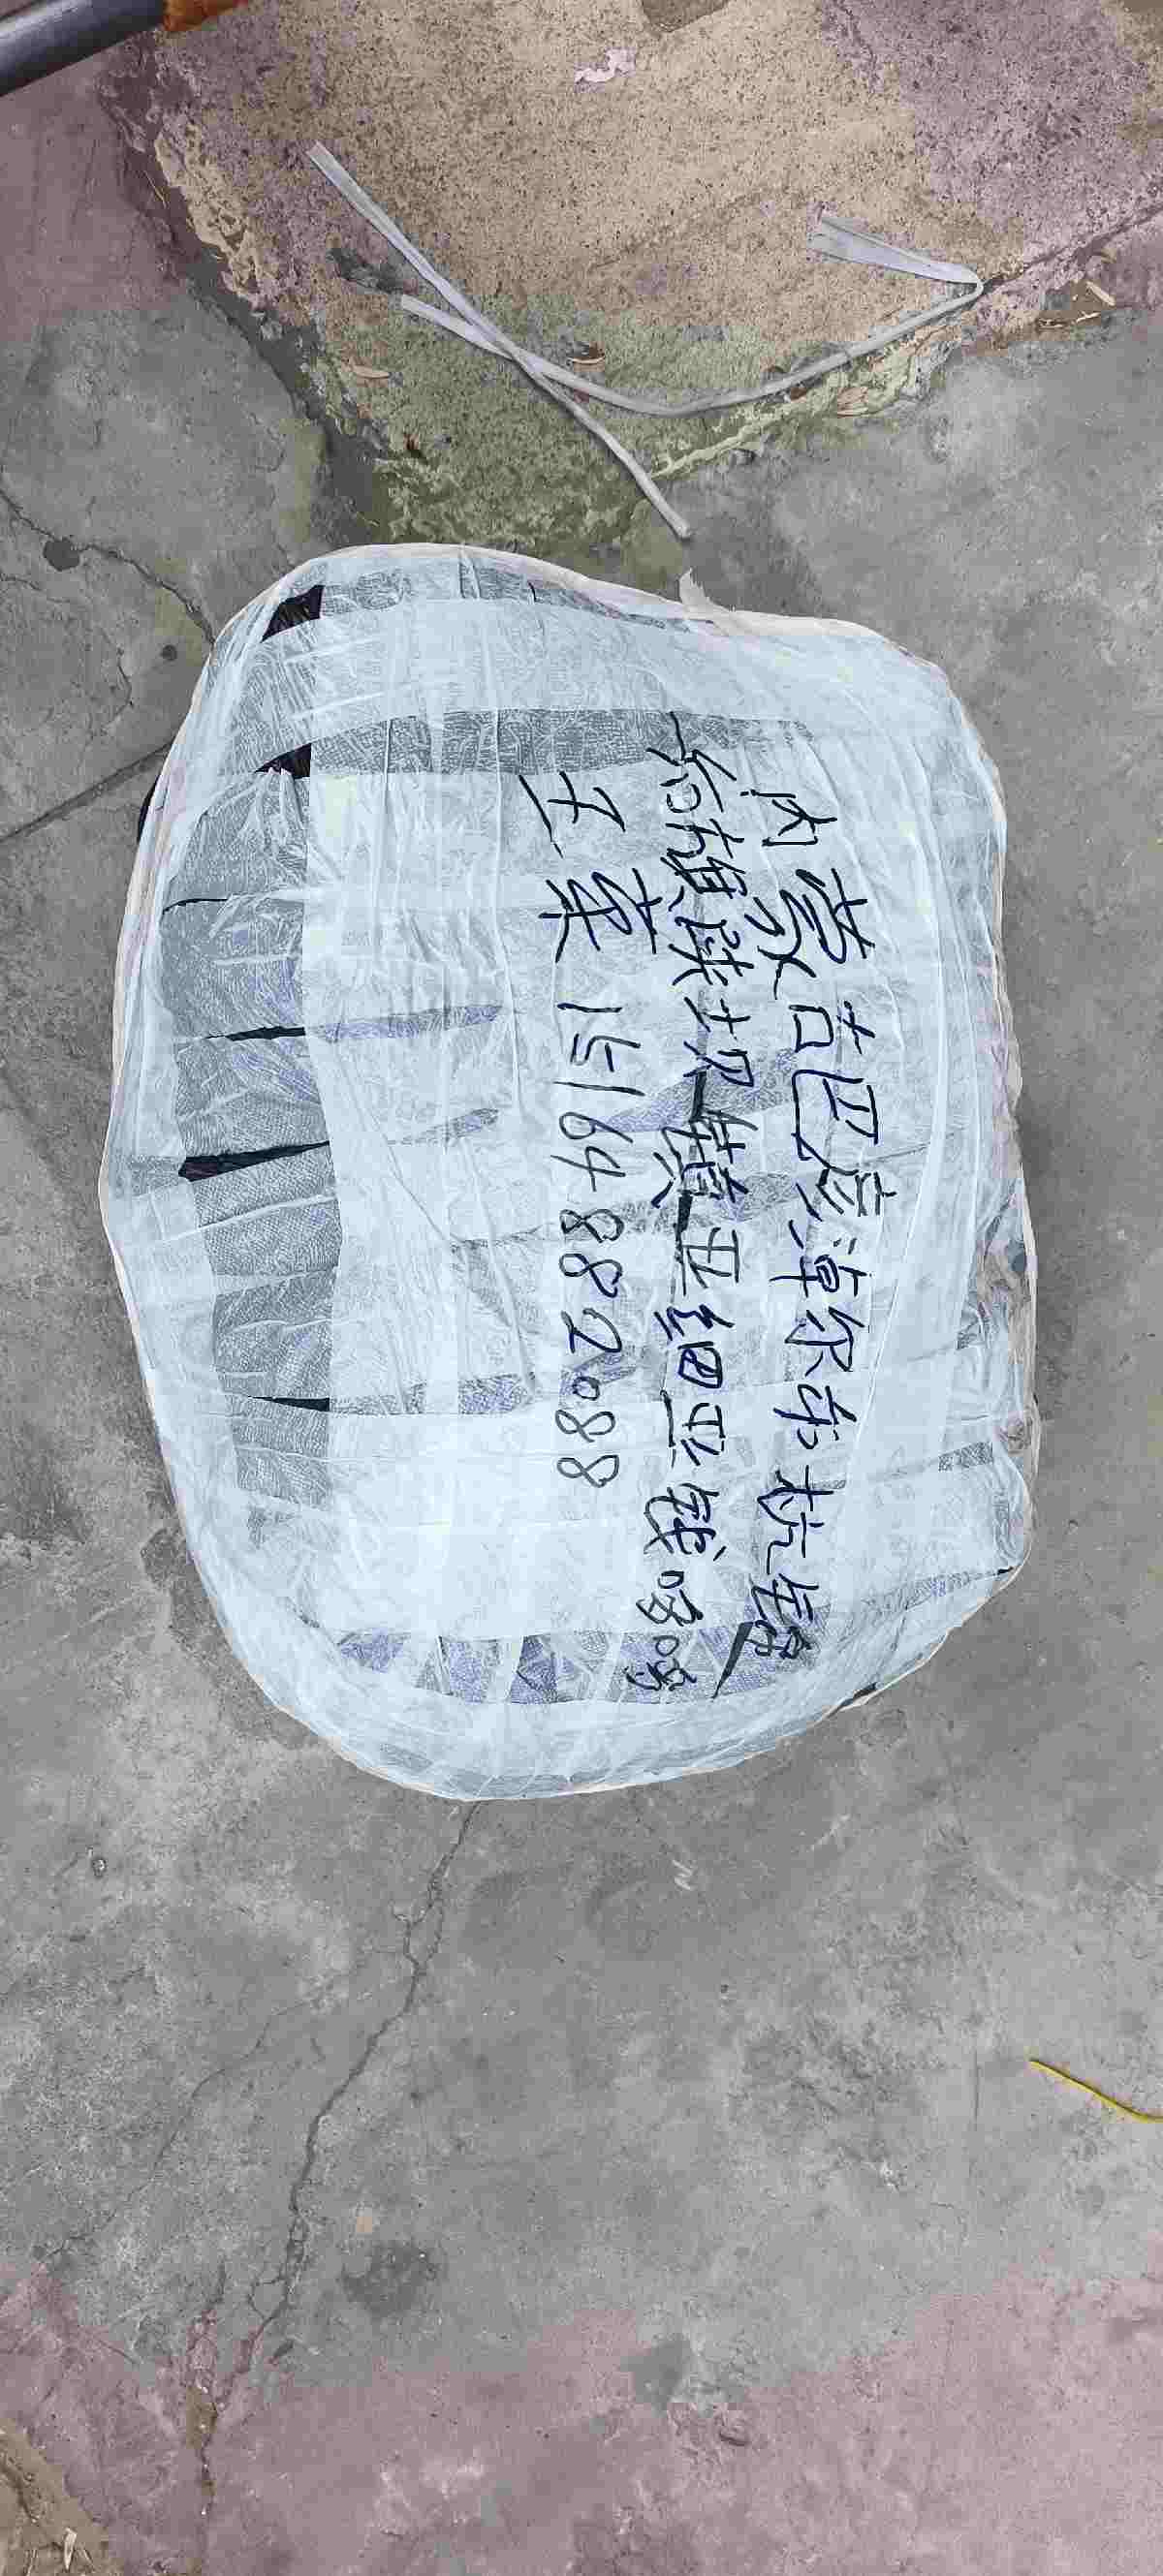 内蒙古巴彦淖尔市杭锦
后旗陕坝镇亚细亚钱
王荣 15164882088